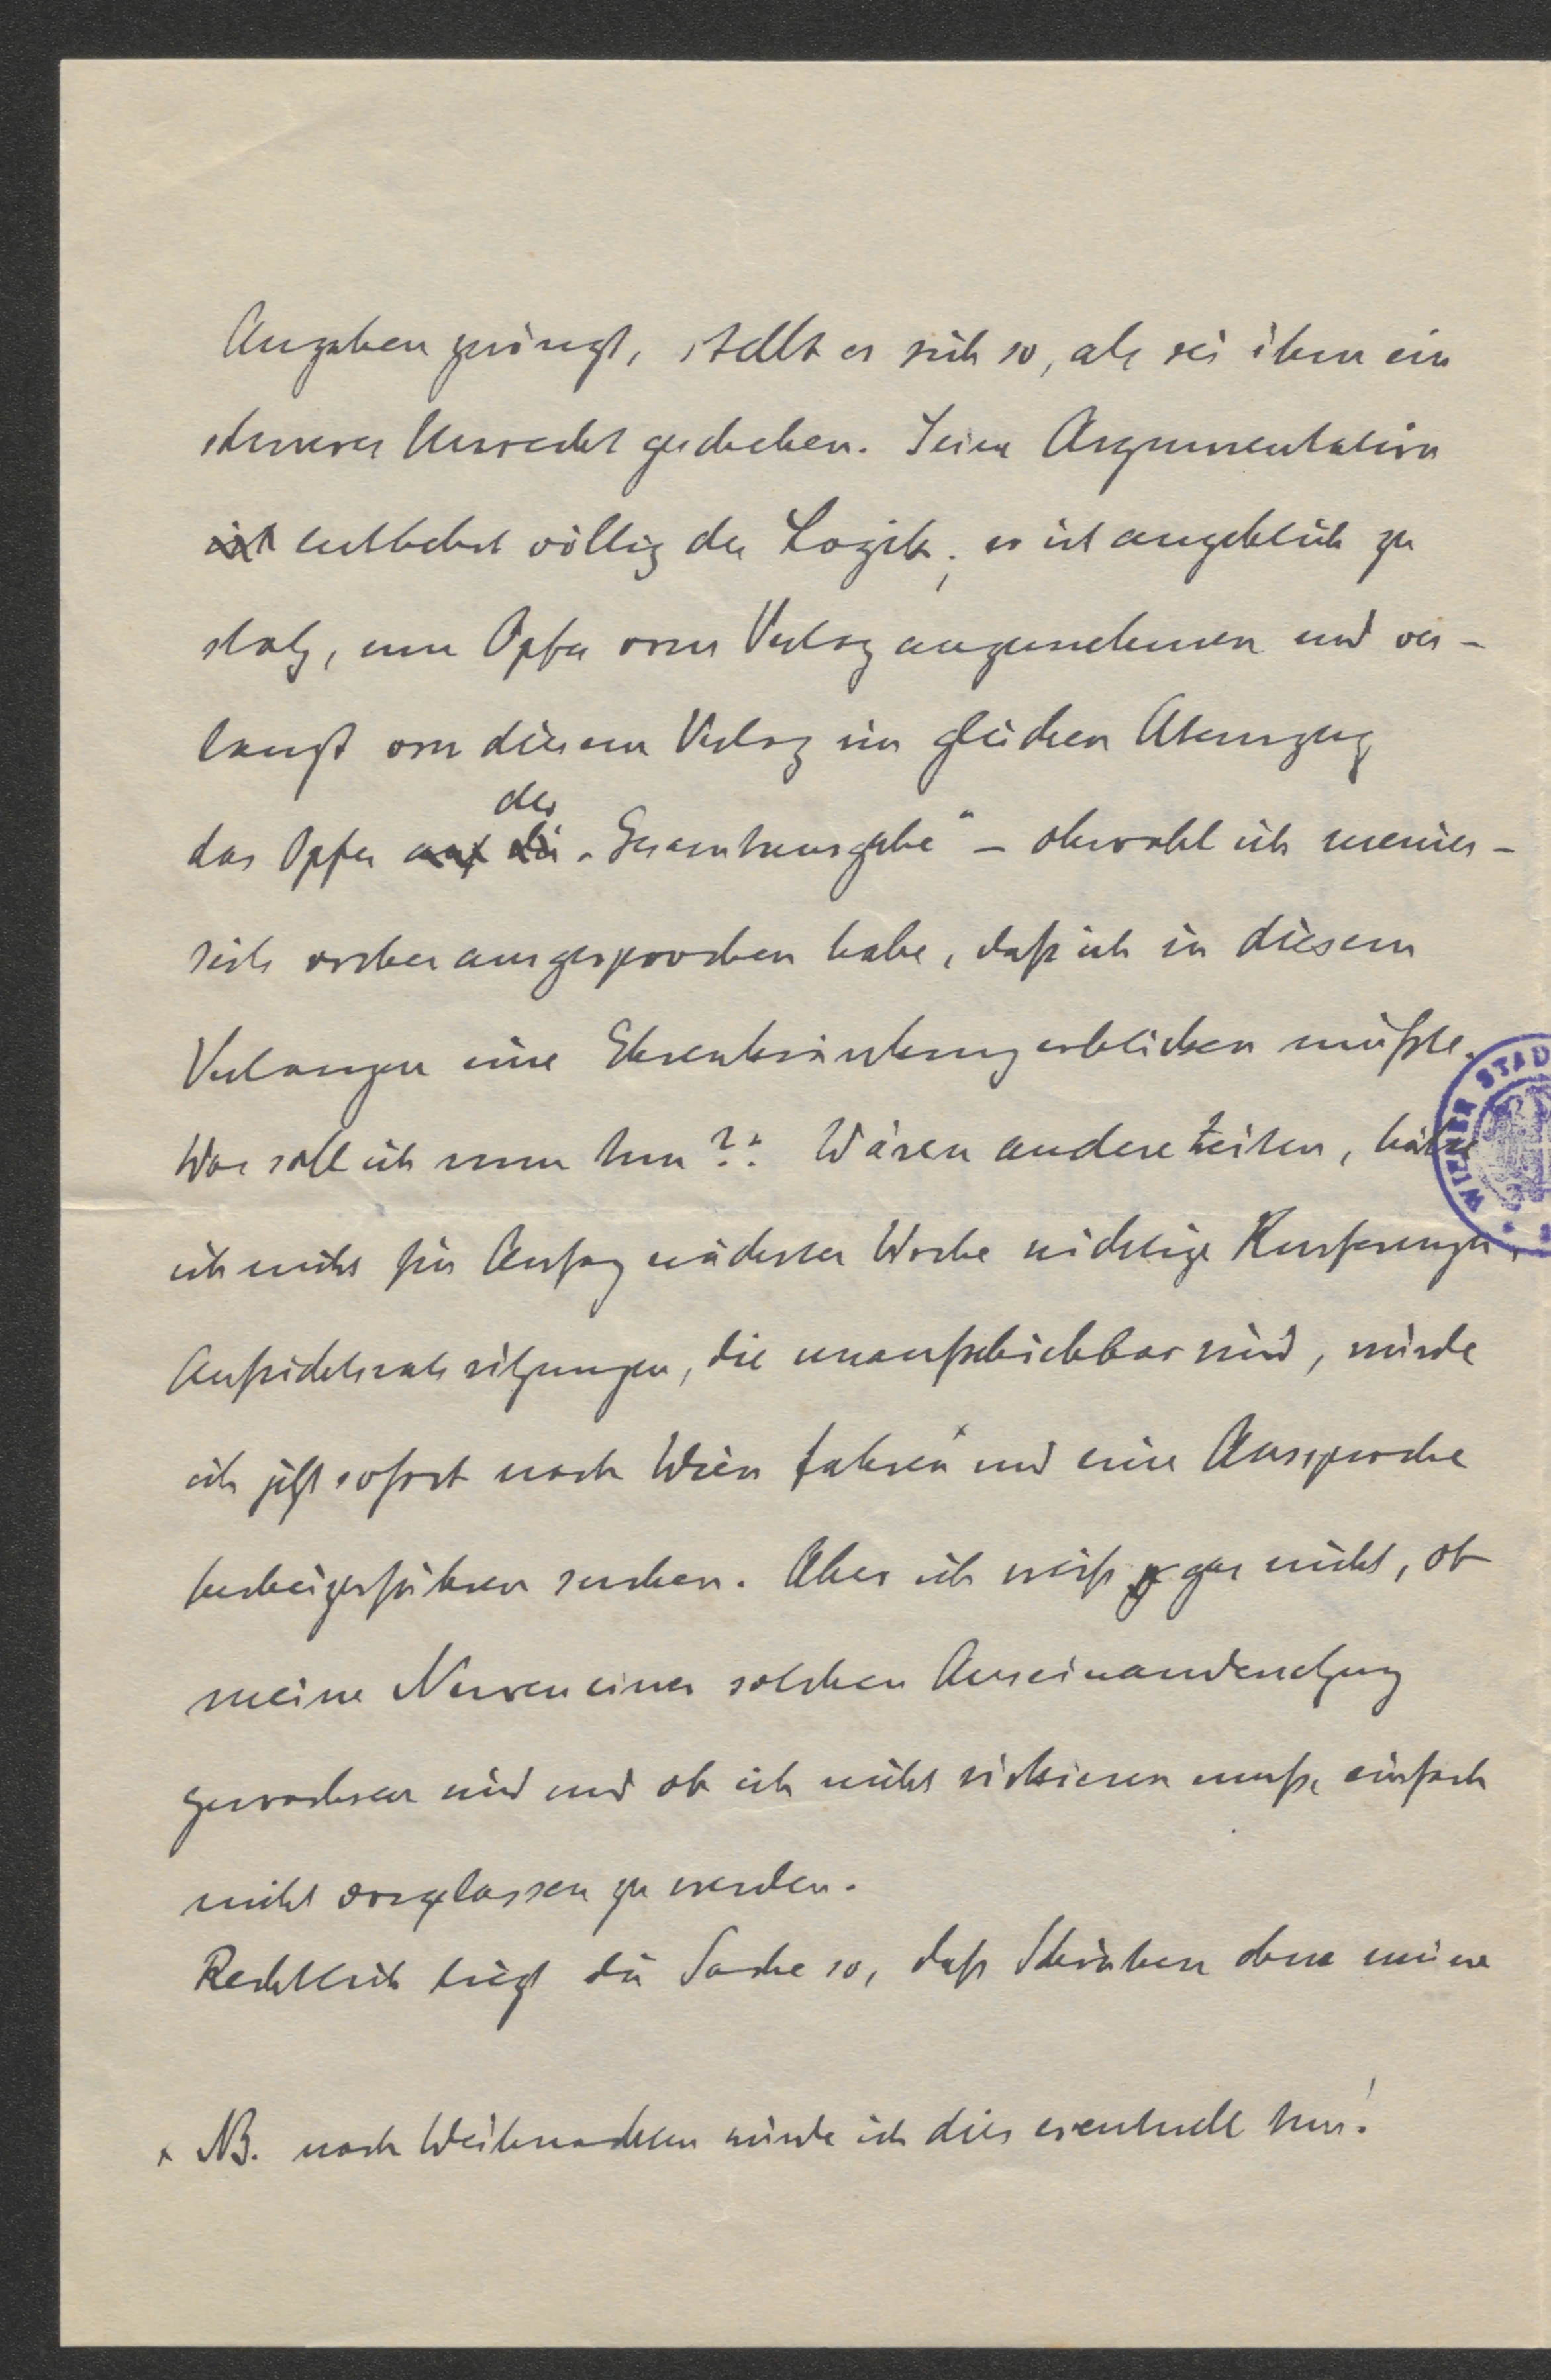 Angaben zwingt, stellt er sich so, als sei ihm ein
schweres Unrecht geschehen. Seine Argumentation
ist entbehrt völlig der Logik; er ist angeblich zu
stolz, um Opfer vom Verlag anzunehmen und ver-
langt von diesem Verlag im gleichen Atemzug
der
das Opfer auf die „Gesamtausgabe“ – obwohl ich meiner-
seits vorher ausgesprochen habe, daß ich in diesem
Verlangen eine Ehrenkränkung erblicken müßte.
Was soll ich nun tun?? Wären andere Zeiten, hätte
ich nicht für Anfang nächster Woche wichtige Konferenzen,
Aufsichtsratssitzungen, die unaufschiebbar sind, würde
ich jetzt sofort nach Wien fahren x und eine Aussprache
herbeizuführen suchen. Aber ich weiß gar nicht, ob
meine Nerven einer solchen Auseinandersetzung
gewachsen sind und ob ich nicht riskieren muß, einfach
nicht vorgelassen zu werden.
Rechtlich liegt die Sache so, daß ohne meine
x NB. nach Weihnachten würde ich dies eventuell tun!
WIENER STAD